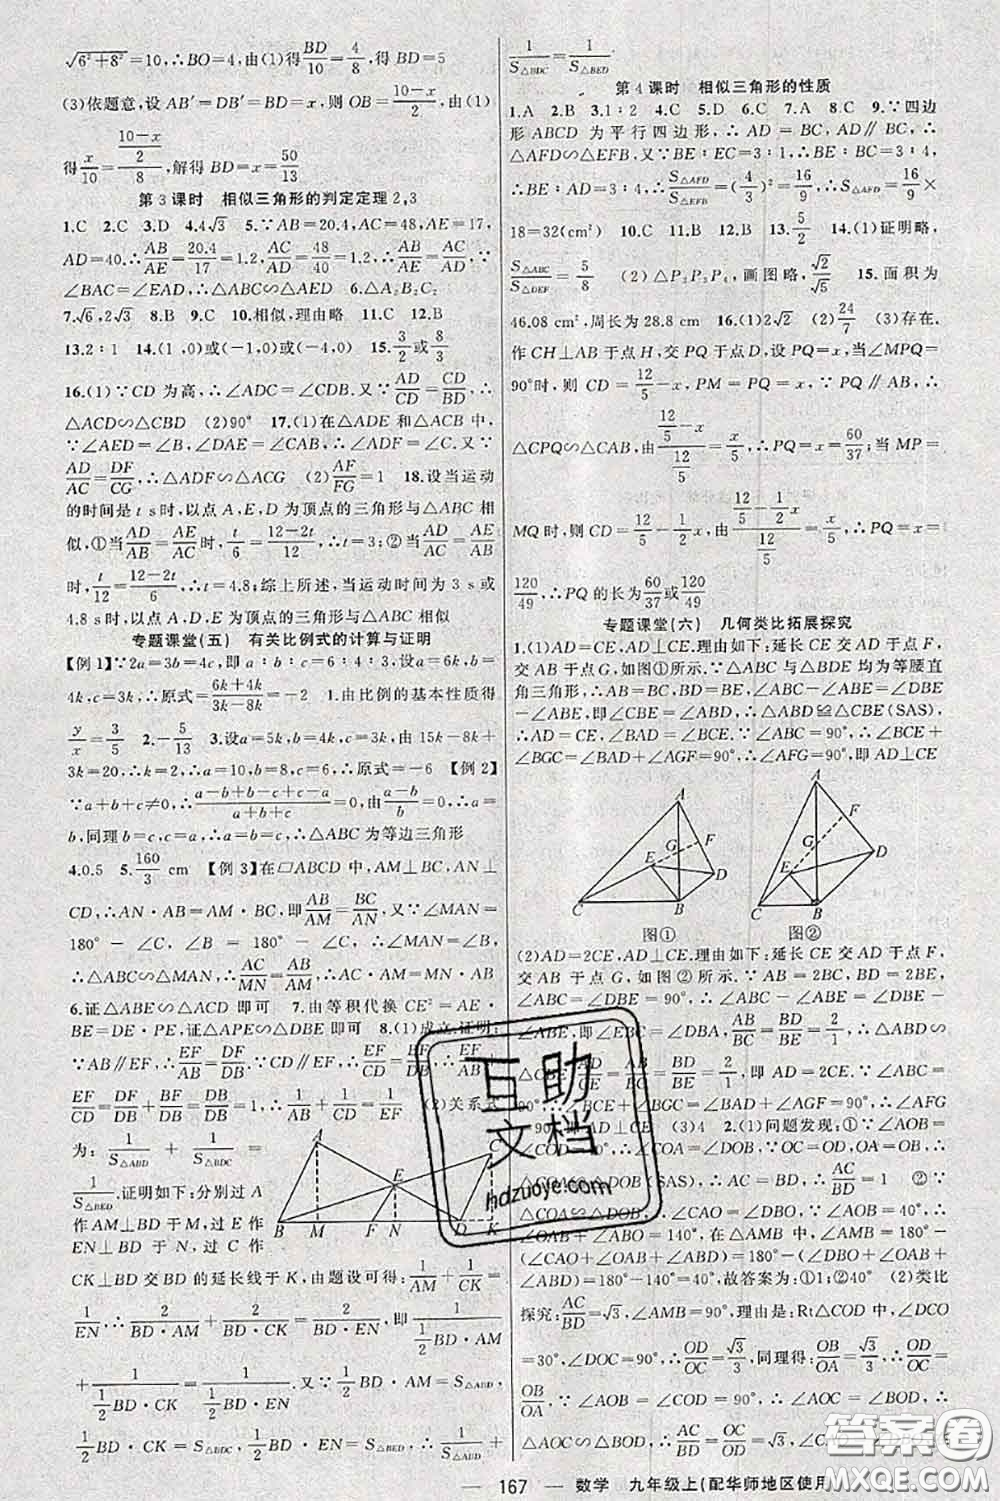 √(6²+8²)=10,∴BO=4,由(1)得BD/10=4/8,得 BD=5
(3)依题意,设 AB′=DB′=BD=x,则 OB=(10-x)/2,由(1)
得x/10=((10-x)/2)/8,解得 BD=x=50/13
第 3 课时 相似三角形的判定定理 2,3
1.C 2.C 3.D 4.4√3 5.∵AB=20.4,AC=48,AE=17,
AD=40.∴AB/AE=20.4/17=1.2,AC/AD=48/40=1.2,∴AB/AE=AC/AD.∵
∠BAC=∠EAD,∴△ABC∽△AED 6.△A₂B₂C₂
7.√6,2√3 8.B 9.C 10.相似,理由略 11.C 12.B
13.2∶1 14.(1,0)或(-1,0)或(-4,0) 15.3/2或8/3
16.(1)∵CD 为高,∴∠ADC=∠CDB.又∵AD/CD=CD/BD,∴
△ACD∽△CBD (2)90° 17.(1)在△ADE 和△ACB 中,
∵∠AED=∠B,∠DAE=∠CAB,∴∠ADF=∠C.又∵
AD/AC=DF/CG,∴△ADF∽△ACG (2)AF/FG=1 18.设当运动
的时间是 t s时,以点 A,E,D 为顶点的三角形与△ABC 相
似,①当AD/AB=AE/AC时,t/6=(12-2t)/12,∴t=3;②当AD/AC=AE/AB
时,t/12=(12-2t)/6,∴t=4.8;综上所述,当运动时间为 3 s或
4.8 s时,以点 A,D,E 为顶点的三角形与△ABC 相似
专题课堂(五) 有关比例式的计算与证明
【例 1】∵2a=3b=4c,即 a∶b∶c=6∶4∶3,设a=6k,b=
4k,c=3k,∴原式=(6k+4k)/(3k-8k)=-2 1.由比例的基本性质得
y/x=3/5 2.-5/13 3.设a=5k,b=4k,c=3k,由 15k-8k+
3k=20,∴k=2,∴a=10,b=8,c=6,∴原式=-6 【例 2】
∵a+b+c≠0,∴(a-b+b-c+c-a)/(a+b+c)=0,由(a-b)/b=0,∴a=
b,同理b=c,a=c,∴a=b=c,∴△ABC 为等边三角形
4.0.5 5.160/3 cm 【例 3】在▱ABCD 中,AM⊥BC,AN⊥
CD,∴AN·AB=AM·BC,即AB/AM=BC/AN,又∵∠MAN=
180°-∠C,∠B=180°-∠C,∴∠MAN=∠B,
∴△ABC∽△MAN,∴AC/MN=AB/AM,∴MN/AC=AM/AB
6.证△ABE∽△ACD 即可 7.由等积代换 CE²=AE·
BE=DE·PE,证△APE∽△DBE 即可 8.(1)成立.证明:
∵AB∥EF,∴EF/AB=DF/DB.∵CD∥EF,∴EF/CD=BF/DB,∴EF/AB+
EF/CD=DF/DB+BF/DB=DB/DB=1,∴1/AB+1/CD=1/EF (2)关系式
为:1/S△ABD+1/S△BDC=
1/S△BED.证明如下:分别过 A
作AM⊥BD 于 M,过 E 作
EN⊥BD 于 N,过 C 作
CK⊥BD 交 BD 的延长线于 K,由题设可得:1/AM+1/CK=
1/EN.∴2/(BD·AM)+2/(BD·CK)=2/(BD·EN),即1/(½BD·AM)
+1/(½BD·CK)=1/(½BD·EN).又∵½BD·AM=S△ABD,
½BD·CK=S△BDC,½BD·EN=S△BED,∴1/S△ABD+
A B M F N D K E C
1/S△BDC=1/S△BED.
第 4 课时 相似三角形的性质
1.A 2.B 3.1∶2 4.C 5.D 6.C 7.A 8.C 9.∵四边
形 ABCD 为平行四边形,∴AD=BC,AD∥BC,∴
△AFD∽△EFB.又∵BE∶EC=3∶1,∴BE∶BC=3∶4,
∴BE∶AD=3∶4,∴S△AFD/S△EFB=(4/3)²=16/9,∴S△AFD=16/9×
18=32(cm²) 10.C 11.B 12.B 13.5/2 14.(1)证明略,
S△ABC/S△DEF=5/8 (2)△P₂P₃P₄,画图略,√2/√5 15.面积为
46.08 cm²,周长为 28.8 cm 16.(1)2√2 (2)24/7 (3)存在.
作 CH⊥AB 于点 H,交 PQ 于点 D,设 PQ=x,当∠MPQ=
90°时,则 CD=12/5-x,PM=PQ=x,∵PQ∥AB,∴
△CPQ∽△CAB,由(12/5-x)/(12/5)=x/5,∴PQ=x=60/37;当 MP=
MQ 时,则 CD=12/5-½x,由(12/5-½x)/(12/5)=x/5,∴PQ=x=
120/49,∴PQ 的长为60/37或120/49
专题课堂(六) 几何类比拓展探究
1.(1)AD=CE,AD⊥CE.理由如下:延长 CE 交 AD 于点 F,
交 AB 于点 G,如图①所示.∵△ABC 与△BDE 均为等腰直
角三角形,∴AB=BC,BD=BE,∠ABC-∠ABE=∠DBE
-∠ABE,即∠CBE=∠ABD,∴△ABD≌△CBE(SAS),
∴AD=CE,∠BAD=∠BCE.∵∠ABC=90°,∴∠BCE+
∠BGC=∠BAD+∠AGF=90°,∴∠AFG=90°,即 AD⊥CE
A F G E D C B 图①
A F G E D C B 图②
(2)AD=2CE,AD⊥CE.理由如下:延长 CE 交 AD 于点 F,
交 AB 于点 G,如图②所示.∵AB=2BC,BD=2BE,
∠ABC=∠DBE=90°,∴∠ABC-∠ABE=∠DBE-
∠ABE,即∠EBC=∠DBA,AB/BC=BD/BE=2/1,∴△ABD∽
AD/CE=AB/BC=BD/BE=2/1,即 AD=2CE,∵∠ABC=
90°,∴∠BCE+∠BGC=∠BAD+∠AGF=90°,∴∠AFG
=90°,即 AD⊥CE (3)4 2.(1)问题发现:①∵∠AOB=
∠COD=40°,∴∠COA=∠DOB.∵OC=OD,OA=OB,
∴△COA≌△DOB(SAS),∴AC=BD,∴AC/BD=1 ②∵
△COA≌△DOB,∴∠CAO=∠DBO.∵∠AOB=40°,∴
∠OAB+∠ABO=140°.在△AMB 中,∠AMB=180°
-(∠CAO+∠OAB+∠ABD)=180°-(∠DBO+∠OAB+
∠ABD)=180°-140°=40°,故答案为:①1;②40° (2)类比
探究:AC/BD=√3,∠AMB=90°,理由是:Rt△COD 中,∠DCO
=30°,∠DOC=90°,∴OD/OC=√3/3,同理得:OB/OA=√3/3,∴OD/OC=
OB/OA.∵∠AOB=∠COD=90°,∴∠AOC=∠BOD,
∴△AOC∽△BOD,∴AC/BD=OC/OD=√3
互助文档
hdzuoye.com
答案圈
MXQE.COM
— 167 — 数学 九年级上(配华师地区使用